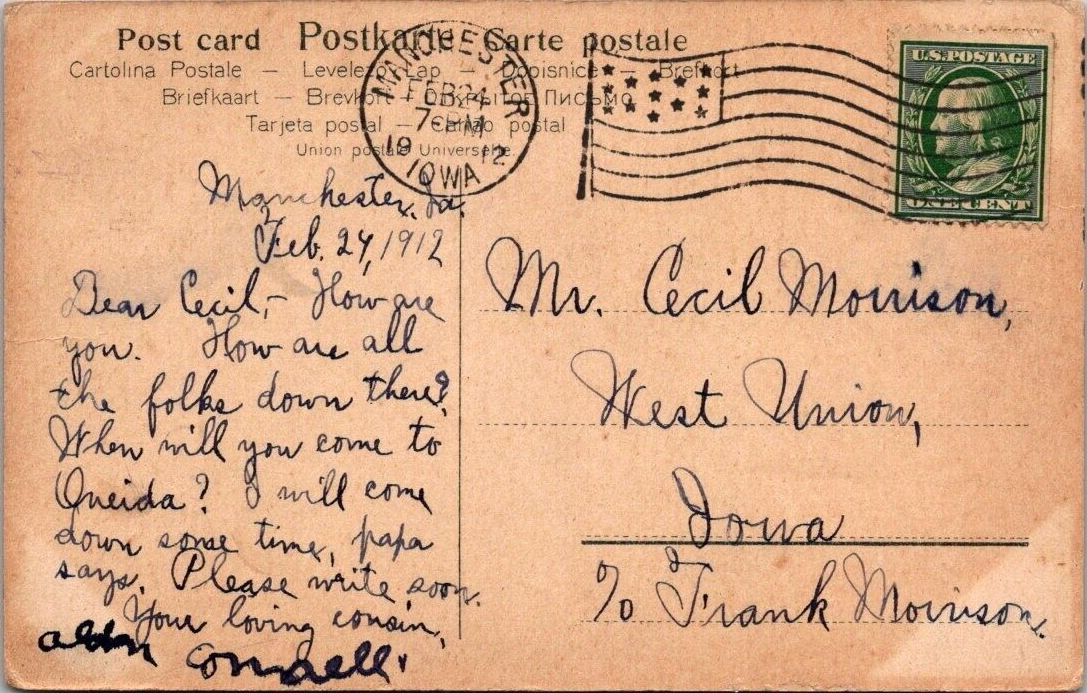 Post card Postkarte Carte postale
Cartolina Postale — Levelező-Lap — Dopisnice — Brefkort
Briefkaart — Brevkort — Открытое письмо
Tarjeta postal — Cartão postal
Union postale Universelle.
MANCHESTER
FEB 24
7 PM
19 12
IOWA
U.S. POSTAGE
ONE CENT
Manchester, Ia.
Feb. 24, 1912
Dear Cecil,— How are
you. How are all
the folks down there?
When will you come to
Oneida? I will come
down some time, papa
says. Please write soon.
Your loving cousin,
Connell
Mr. Cecil Morrison,
West Union,
Iowa
c/o Frank Morrison.